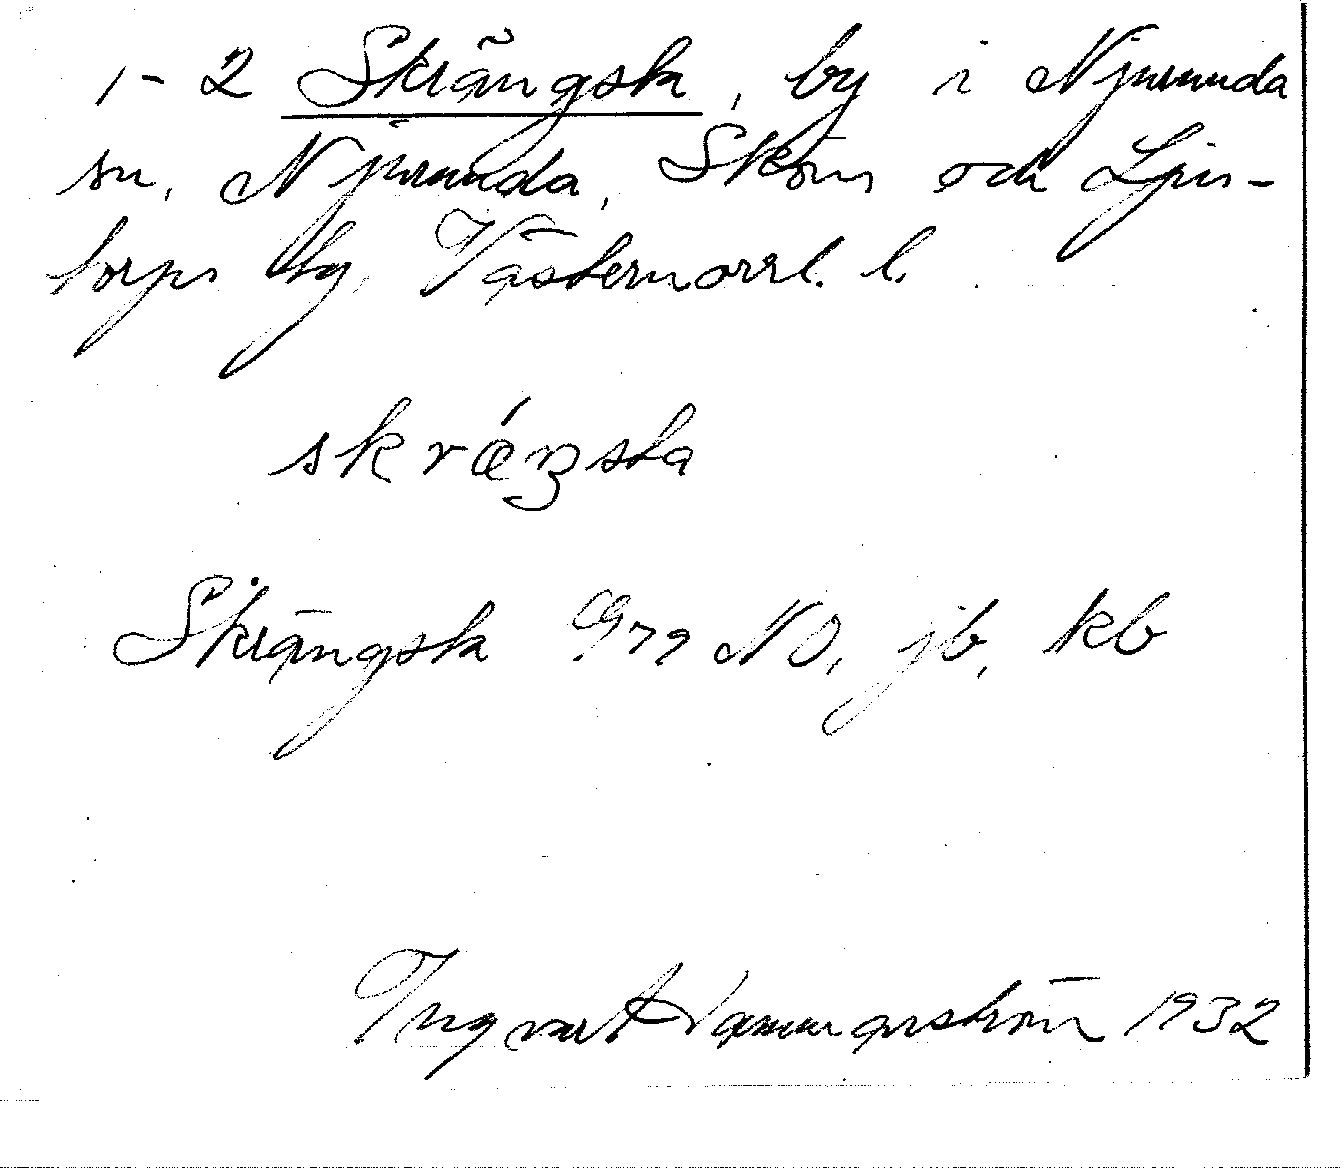 1-2 Skrängsta, by i Njurunda
sn, Njurunda, Sköns och Ljus-
torps tg, Västernorrl. l.
skrǽŋsta
Skrängsta Grg NO, jb, kb
Ingvart Hammarström 1932